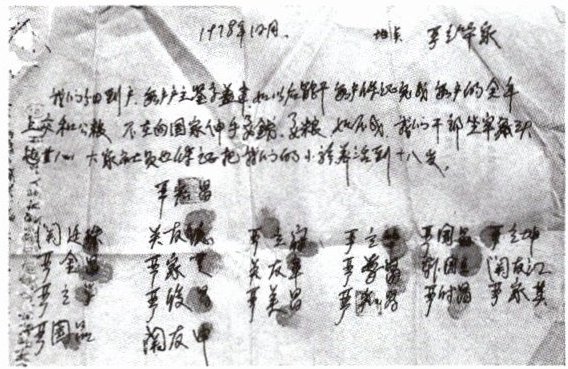 1978年12月. 地点 严立华家
我们分田到户 每户户主签字盖章 如以后能干 每户保证完成每户的全年
上交和公粮 不在向国家伸手要钱要粮 如不成 我们干部坐牢杀头
也甘心 大家社员也保证把我们的小孩养活到十八岁
严宏昌
关廷珠 关友德 严立符 严立华 严国昌 严立坤
严金昌 严家芝 关友章 严学昌 韩国云 关友江
严立学 严俊昌 严美昌 严付昌 严家其
严国品 关友申